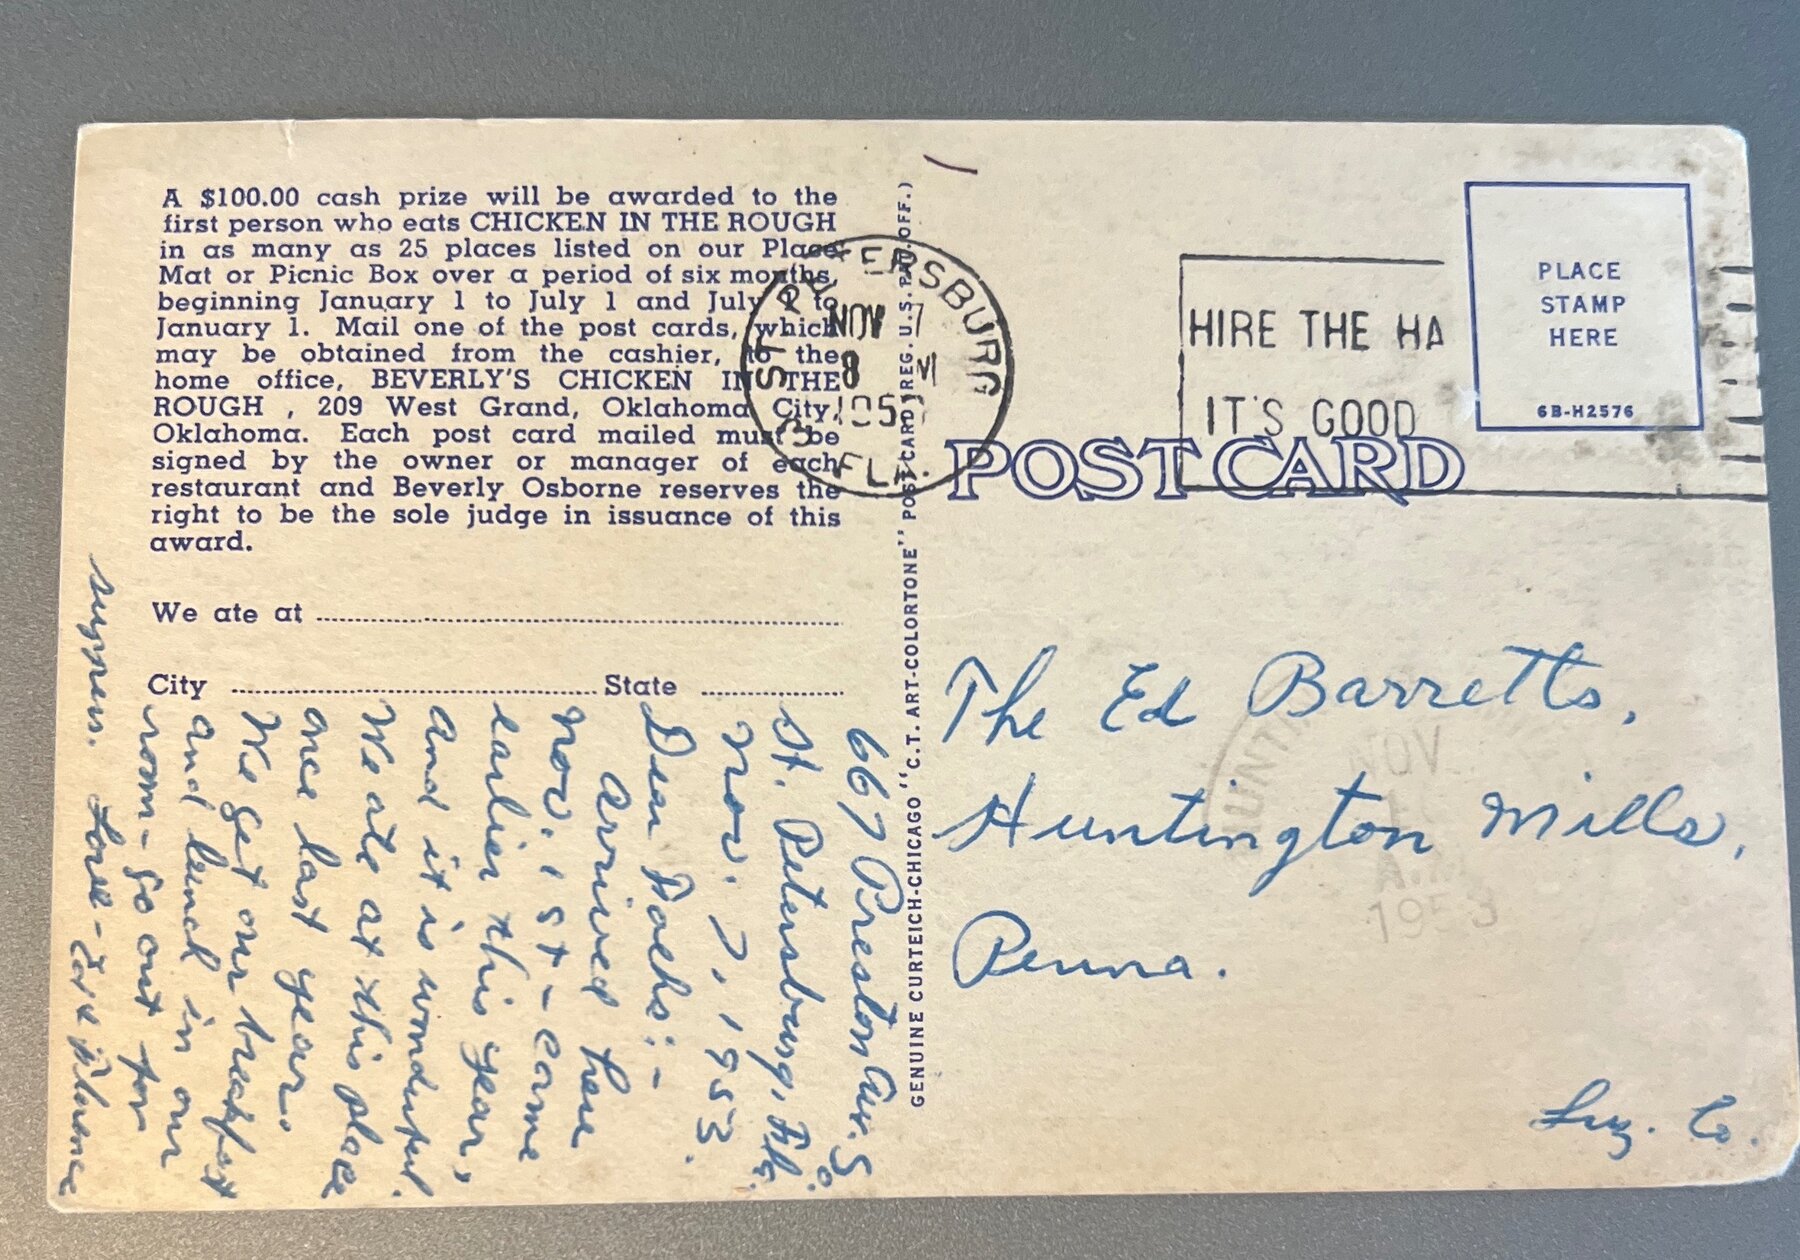 A $100.00 cash prize will be awarded to the
first person who eats CHICKEN IN THE ROUGH
in as many as 25 places listed on our Place
Mat or Picnic Box over a period of six months,
beginning January 1 to July 1 and July 1 to
January 1. Mail one of the post cards, which
may be obtained from the cashier, to the
home office, BEVERLY'S CHICKEN IN THE
ROUGH , 209 West Grand, Oklahoma City,
Oklahoma. Each post card mailed must be
signed by the owner or manager of each
restaurant and Beverly Osborne reserves the
right to be the sole judge in issuance of this
award.
We ate at
City State
667 Preston Ave. So.
St. Petersburg, Fla.
Nov. 7, 1953.
Dear Folks:-
Arrived here
Nov. 1st - came
earlier this year,
and it is wonderful.
We ate at this place
once last year.
We get our breakfast
and lunch in our
room - go out for
supper. Love -
GENUINE CURTEICH-CHICAGO "C.T. ART-COLORTONE" POST CARD (REG. U.S. PAT. OFF.)
ST. PETERSBURG
NOV 7
8 M
195
FLA.
HIRE THE HA
IT'S GOOD
PLACE
STAMP
HERE
6B-H2576
POST CARD
The Ed Barretts,
Huntington Mills,
Penna.
Luz. Co.
HUNTI
NOV
A.M
1953